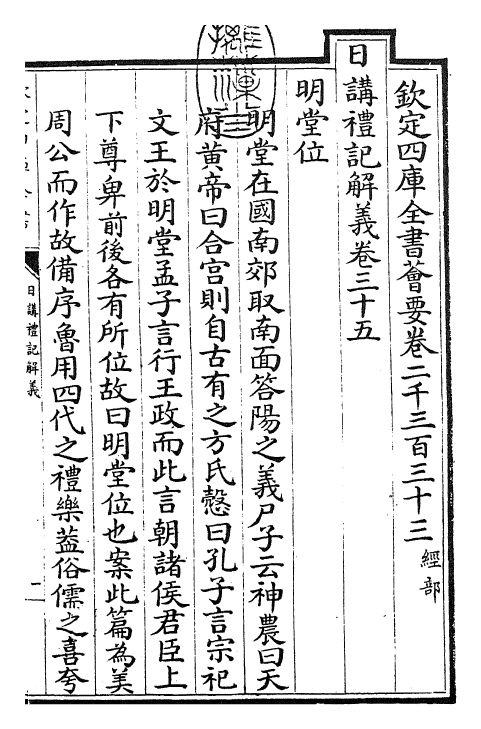 欽定四庫全書薈要卷二千三百三十三 經部
日講禮記解義卷三十五
明堂位
明堂在國南郊取南面答陽之義尸子云神農曰天
府黄帝曰合宫則自古有之方氏慤曰孔子言宗祀
文王於明堂孟子言行王政而此言朝諸侯君臣上
下尊卑前後各有所位故曰明堂位也案此篇為美
周公而作故備序魯用四代之禮樂葢俗儒之喜夸
日講禮記解義